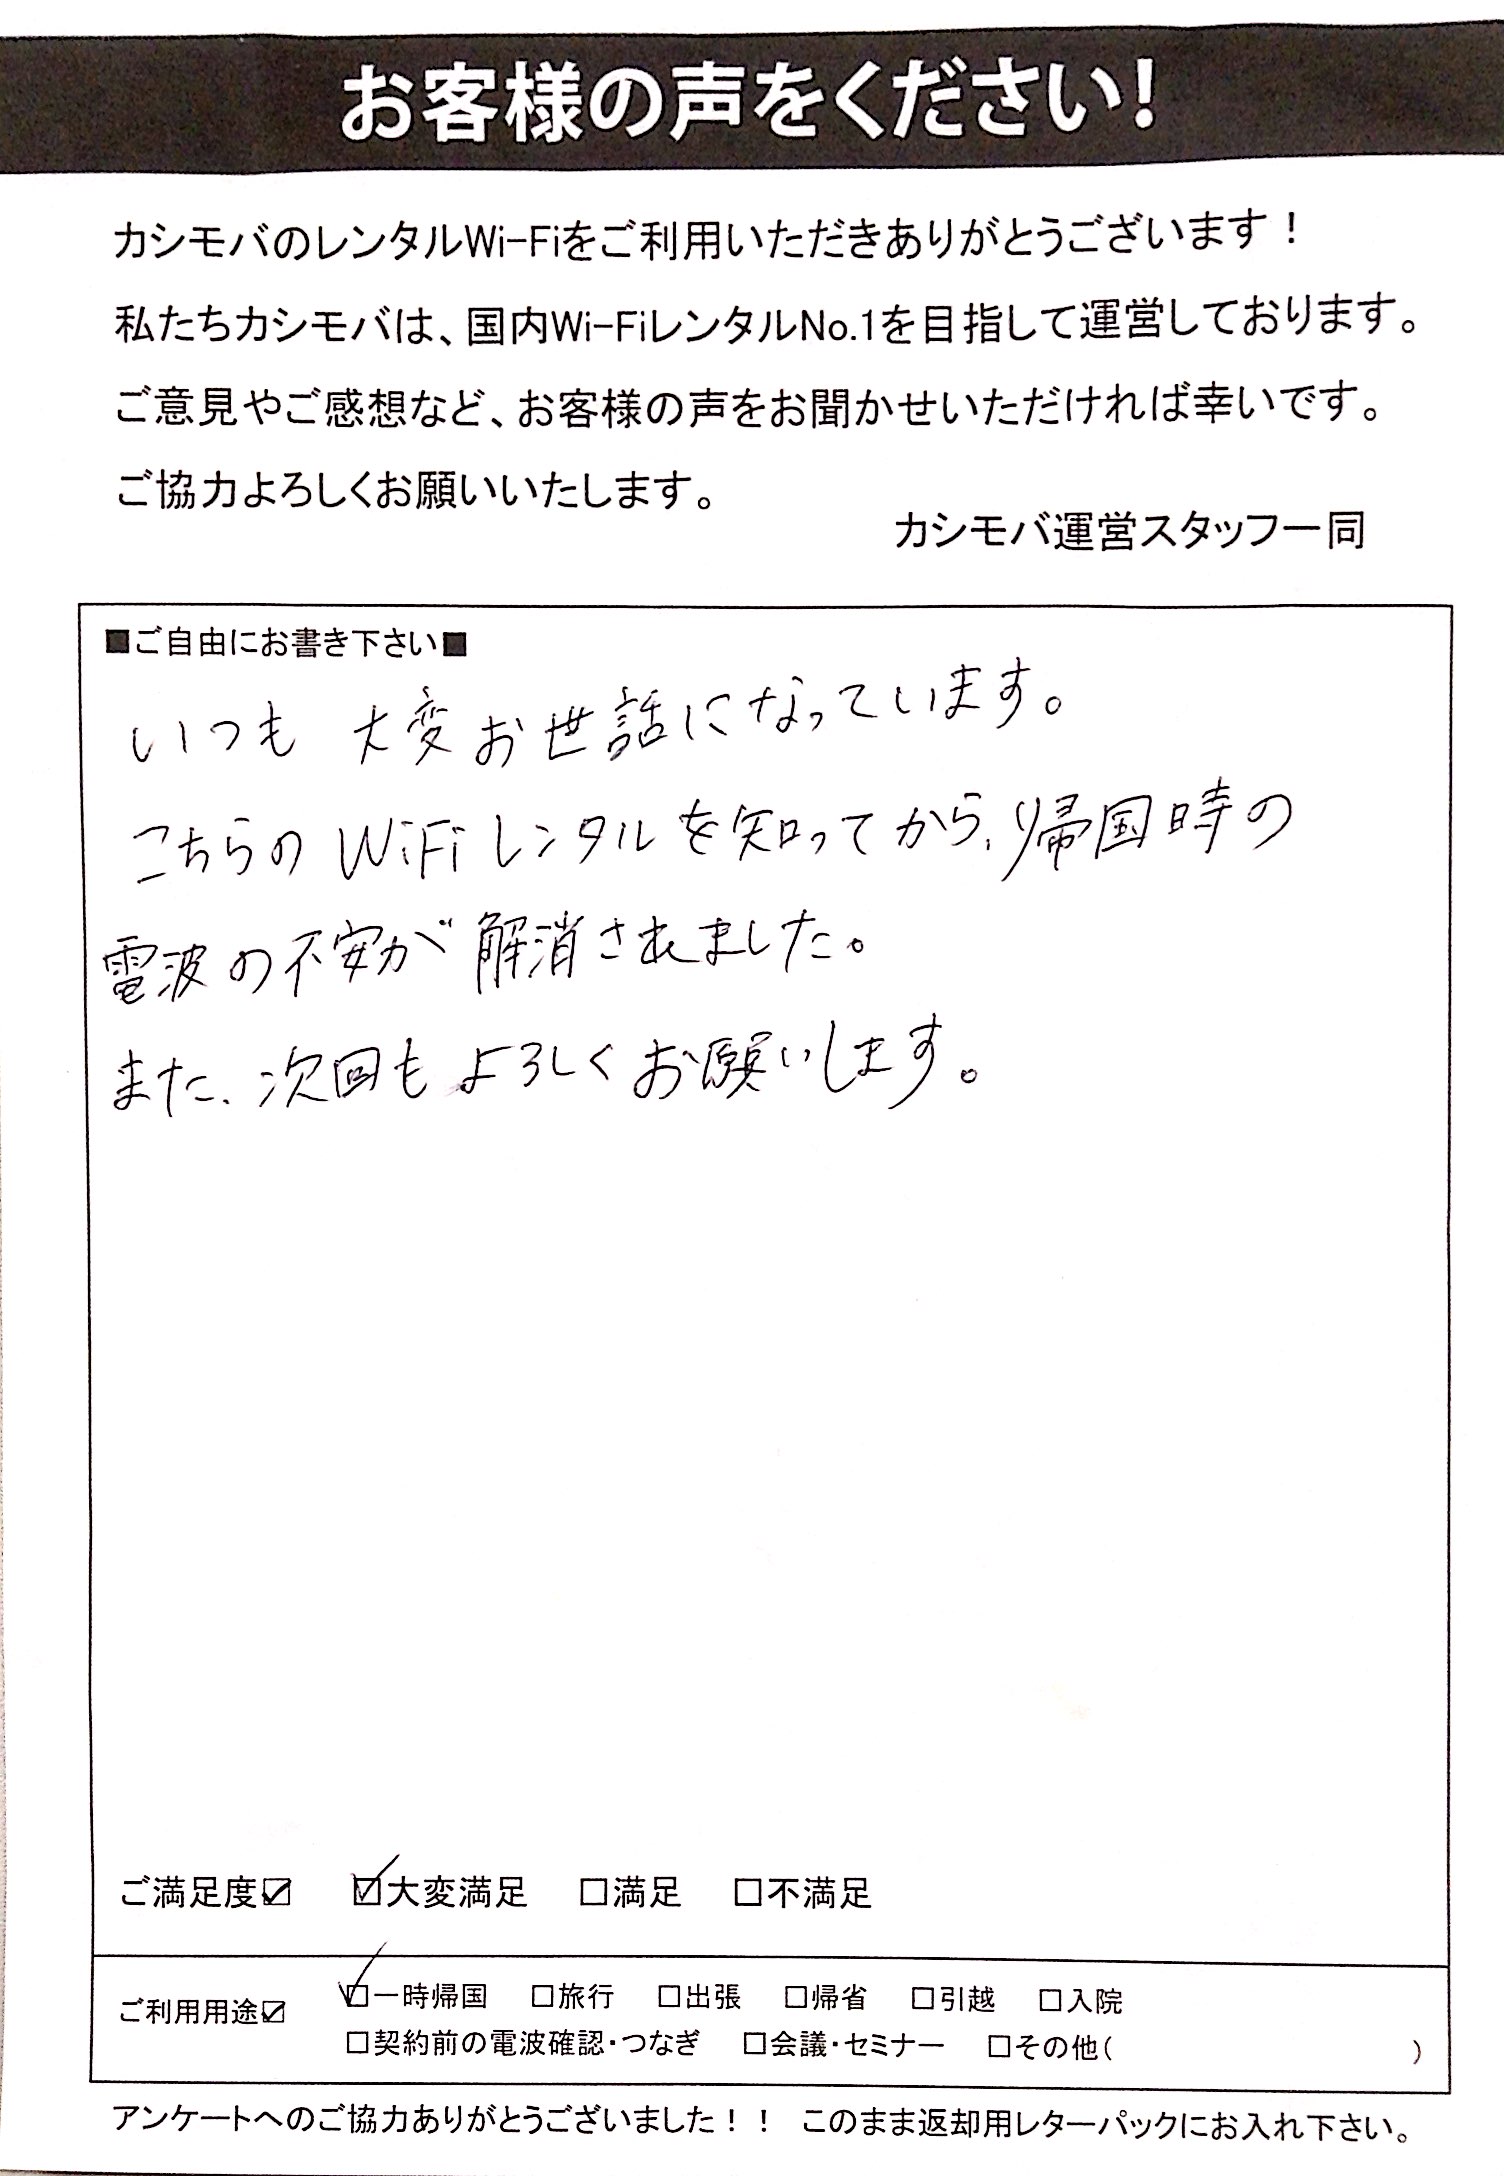 お客様の声をください!
カシモバのレンタルWi-Fiをご利用いただきありがとうございます!
私たちカシモバは、国内Wi-FiレンタルNo.1を目指して運営しております。
ご意見やご感想など、お客様の声をお聞かせいただければ幸いです。
ご協力よろしくお願いいたします。
カシモバ運営スタッフ一同
■ご自由にお書き下さい■
いつも 大変お世話になっています。
こちらの WiFi レンタルを知ってから、帰国時の
電波の不安が解消されました。
また、次回もよろしくお願いします。
ご満足度☑ ☑大変満足 □満足 □不満足
ご利用用途☑ ☑一時帰国 □旅行 □出張 □帰省 □引越 □入院
□契約前の電波確認・つなぎ □会議・セミナー □その他( )
アンケートへのご協力ありがとうございました!! このまま返却用レターパックにお入れ下さい。